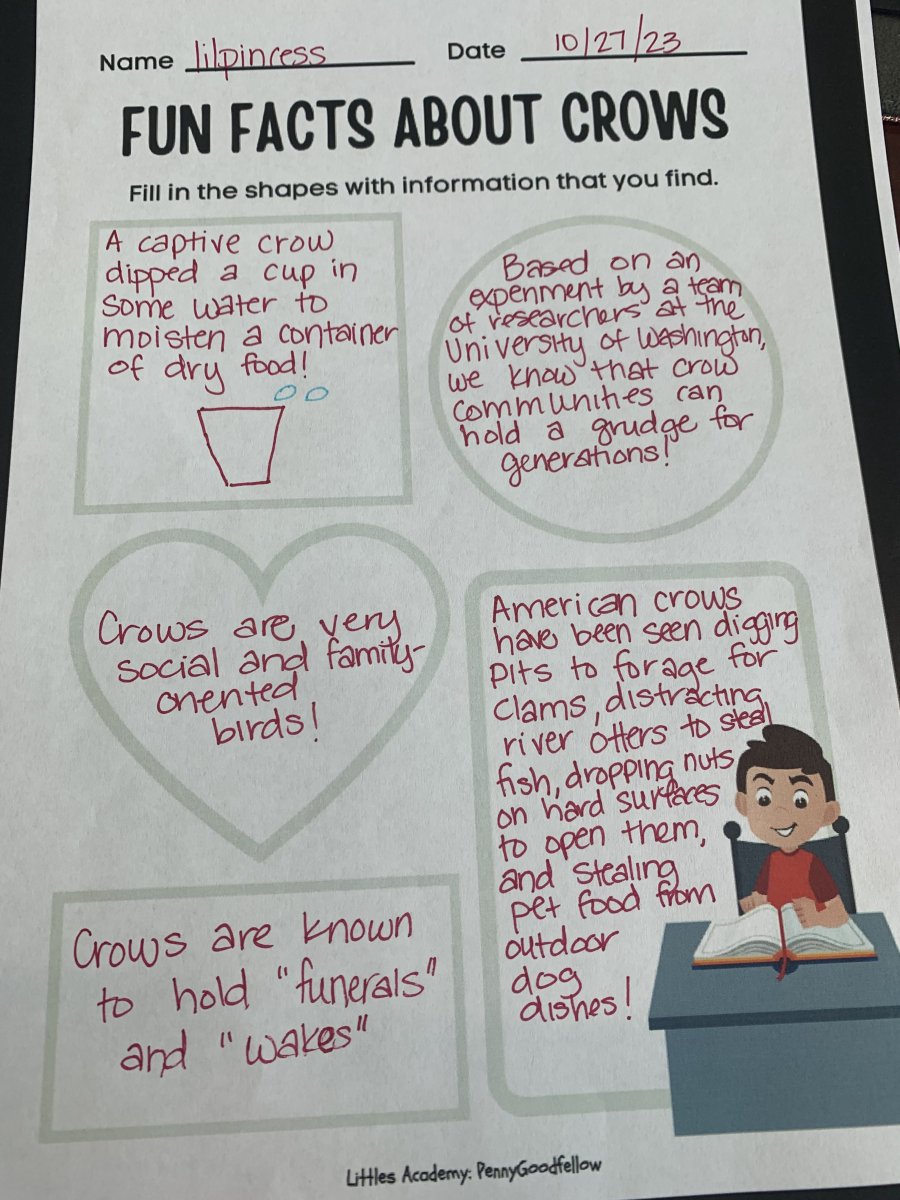 Name lilpincess Date 10/27/23
FUN FACTS ABOUT CROWS
Fill in the shapes with information that you find.
A captive crow
dipped a cup in
some water to
moisten a container
of dry food!
Based on an
experiment by a team
of researchers at the
University of Washington,
we know that crow
communities can
hold a grudge for
generations!
Crows are very
social and family-
oriented
birds!
American crows
have been seen digging
pits to forage for
clams, distracting
river otters to steal
fish, dropping nuts
on hard surfaces
to open them,
and stealing
pet food from
outdoor
dog
dishes!
Crows are known
to hold "funerals"
and "wakes"
Littles Academy: PennyGoodfellow